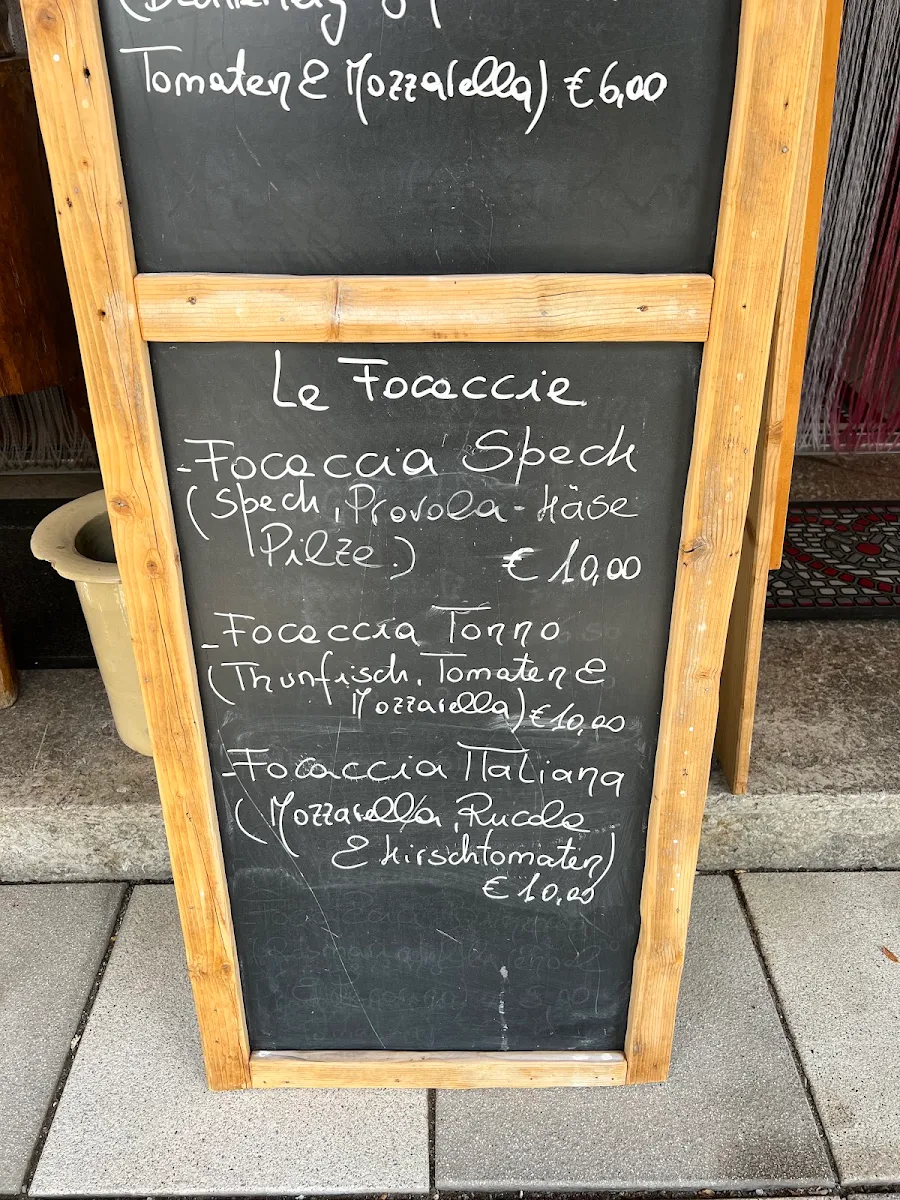 Tomaten & Mozzarella) € 6,00
Le Focaccie
-Focaccia Speck
(Speck, Provola-Käse
Pilze.) € 10,00
-Focaccia Tonno
(Thunfisch, Tomaten &
Mozzarella) € 10,00
-Focaccia ITaliana
(Mozzarella, Rucola
& Kirschtomaten)
€ 10,00